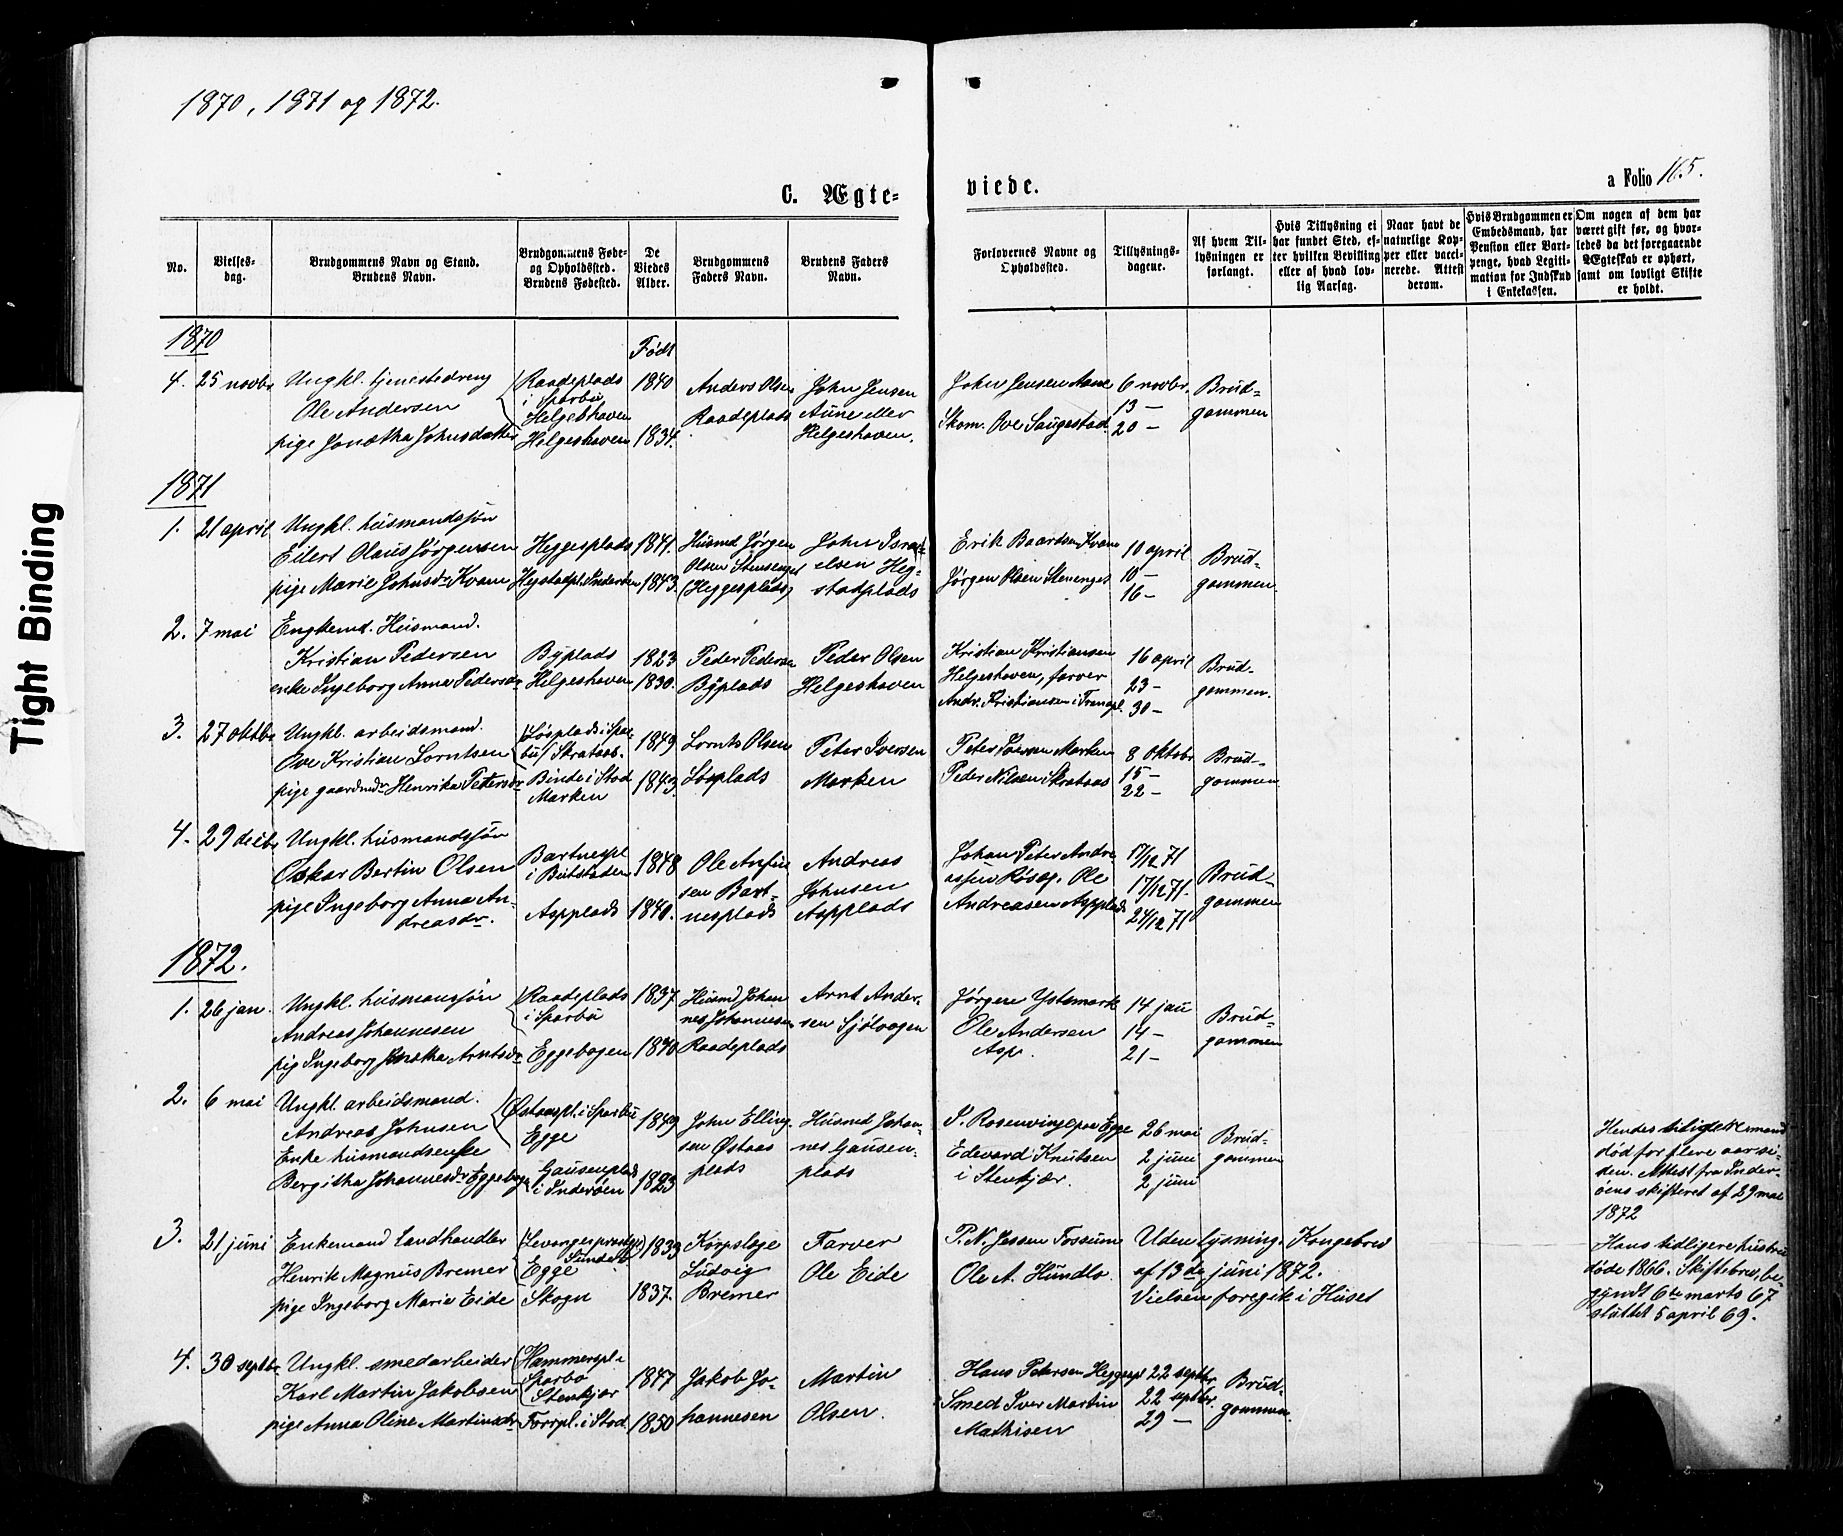 1870, 1871 og 1872.
C. Ægte-
viede.
a Folio 165.
No.
Vielses-
dag.
Brudgommens Navn og Stand.
Brudens Navn.
Brudgommens Føde-
og Opholdssted.
Brudens Fødested.
De
Viedes
Alder.
Brudgommens
Faders Navn.
Brudens Faders
Navn.
Forlovernes Navne og
Opholdssted.
Tillysnings-
dagene.
Af hvem Til-
lysningen er
forlangt.
Hvis Tillysning ei
har fundet Sted, ef-
ter hvilken Bevilling
eller af hvad lov-
lig Aarsag.
Naar havt de
naturlige Kop-
per eller vacci-
nerede. Attest
derom.
Hvis Brudgommen er
Embedsmand, har
Pension eller Vart-
penge, hvad Legiti-
mation for Indskud
i Enkekassen.
Om nogen af dem har
været gift før, og hvor-
ledes da det foregaaende
Ægteskab er ophørt,
samt om lovligt Skifte
er holdt.
1870
Født
4. 25 novbr
Ungkl. tjenestedreng
Ole Andersen
pige Jonætha Johnsdatter
Raadeplads
i Sparbu
Helgeshaven
Helgeshaven
1840
1834.
Anders Olsen
Raadeplads
John Jensen
Aune eller
Helgeshaven.
John Jensen Aune
Skom. Ove Saugestad.
6 novbr.
13 —
20 —
Brud-
gommen
1871
1. 21 april
Ungkl. husmandssøn
Eilert Olaus Jørgensen
pige Marie Johnsdr Kvam
Heggesplads
Hegstadpl. Inderøen
1841.
1843.
Husmd Jørgen
Olsen Stensenget
(Heggesplads)
John Isra-
elsen Heg-
stadplads
Erik Baardsen Kvam
Jørgen Olsen Stenenget
10 april
10 —
16 —
Brud-
gommen.
2. 7 mai
Engkemd. Husmand.
Kristian Pedersen
enke Ingeborg Anna Pedersdr
Byplads
Helgeshaven
1823
1830.
Peder Pedersen
Byplads
Peder Olsen
Helgeshaven
Kristian Kristiansen
Helgeshaven, farver
Andr. Kristiansen i Trangpl.
16 april
23 —
30 —
Brud-
gommen.
3. 27 oktbr
Ungkl. arbeidsmand.
Ove Kristian Lorntsen
pige gaardmdr Henrika Petersdr
Løsplads i Spar-
bu / Strataas.
Binde i Stod
Marken
1849
1843.
Lornts Olsen
Løsplads
Peter Iversen
Marken
Peter Iversen Marken
Peder Nilsen Skrataas
8 oktobr
15 —
22 —
Brud-
gommen
4. 29 decbr
Ungkl. husmandssøn
Oskar Bertin Olsen
pige Ingeborg Anna An-
dreasdr.
Bartnespl
i Beitstaden
Aspplads
1848
1840.
Ole Anfin
sen Bart-
nesplads
Andreas
Johnsen
Aspplads
Johan Peter Andre
assen Røseg. Ole
Andreasen Aspplads
17/12 71
17/12 71.
24/12 71
Brud-
gommen
1872.
1. 26 jan.
Ungkl. husmanssøn
Andreas Johannesen
pig Ingeborg Jonetha Arntsdr
Raadeplads
i Sparbu
Eggebogen
1837
1840
Husmd Johan
nes Johannesen
Raadeplads
Arnt Ander-
sen Sjølvogen
Jørgen Ystemark
Ole Andersen
Asp.
14 jan
14 —
21 —
Brud-
gommen
2. 6 mai
Ungkl. arbeidsmand.
Andreas Johnsen
Enke husmandsenke
Bergitha Johannesdr Eggebog
Østaaspl. i Sparbu
Egge
Gausenplads
i Inderøen
1849
1823
John Elling-
sen Østaas
plads
Husmd Johan-
nes Gausen-
plads
P. Rosenvinge paa Egge
Edevard Knutsen
i Stenkjær.
26 mai
2 juni
2 juni
Brud-
gommen
Hendes tidligere mand
død for flere aar si-
den. Attest fra Inder-
øens skifteret af 29 mai
1872
3. 21 juni
Enkemand Landhandler
Henrik Magnus Bremer
pige Ingeborg Marie Eide
Egge
Skogn
1833
1837.
Korpslæge
Ludvig
Bremer
Farver
Ole Eide
P. N. Jessen Fossum
Ole A. Hundlo.
Uden lysning. Kongebrev
af 13de juni 1872.
Vielsen foregik i Huset
Hans tidligere hustru
døde 1866. Skiftebrev, be-
gyndt 6te marts 67
sluttet 5 april 69.
4. 30 septbr.
Ungkl. smedarbeider
Karl Martin Jakobsen
pige Anna Oline Martinsdr
Hammerspl. i
Sparbu
Stenkjær
Forrpl. i Stod
1847
1850
Jakob Jo-
hannesen
Martin
Olsen.
Hans Petersen Heggespl
Smed Iver Martin
Mathisen
22 septbr.
22 septbr.
29 —
Brud-
gommen.
Tight Binding